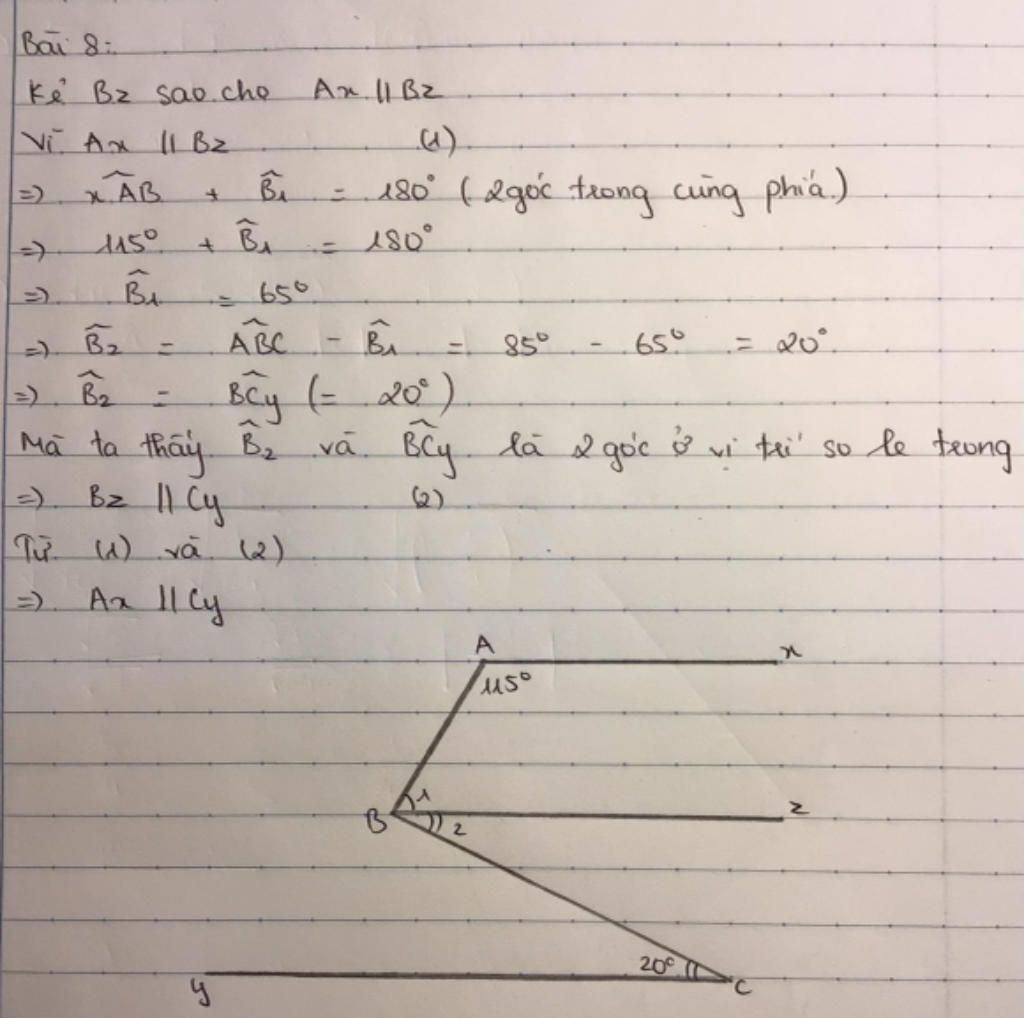 Bài 8:
Kẻ Bz sao cho Ax // Bz
Vì Ax // Bz (1)
=> xÂB + B̂₁ = 180° (2 góc trong cùng phía)
=> 115° + B̂₁ = 180°
=> B̂₁ = 65°
=> B̂₂ = AB̂C - B̂₁ = 85° - 65° = 20°
=> B̂₂ = BĈy (= 20°)
Mà ta thấy B̂₂ và BĈy là 2 góc ở vị trí so le trong
=> Bz // Cy (2)
Từ (1) và (2)
=> Ax // Cy
A x
115°
1
B z
2
20°
y C